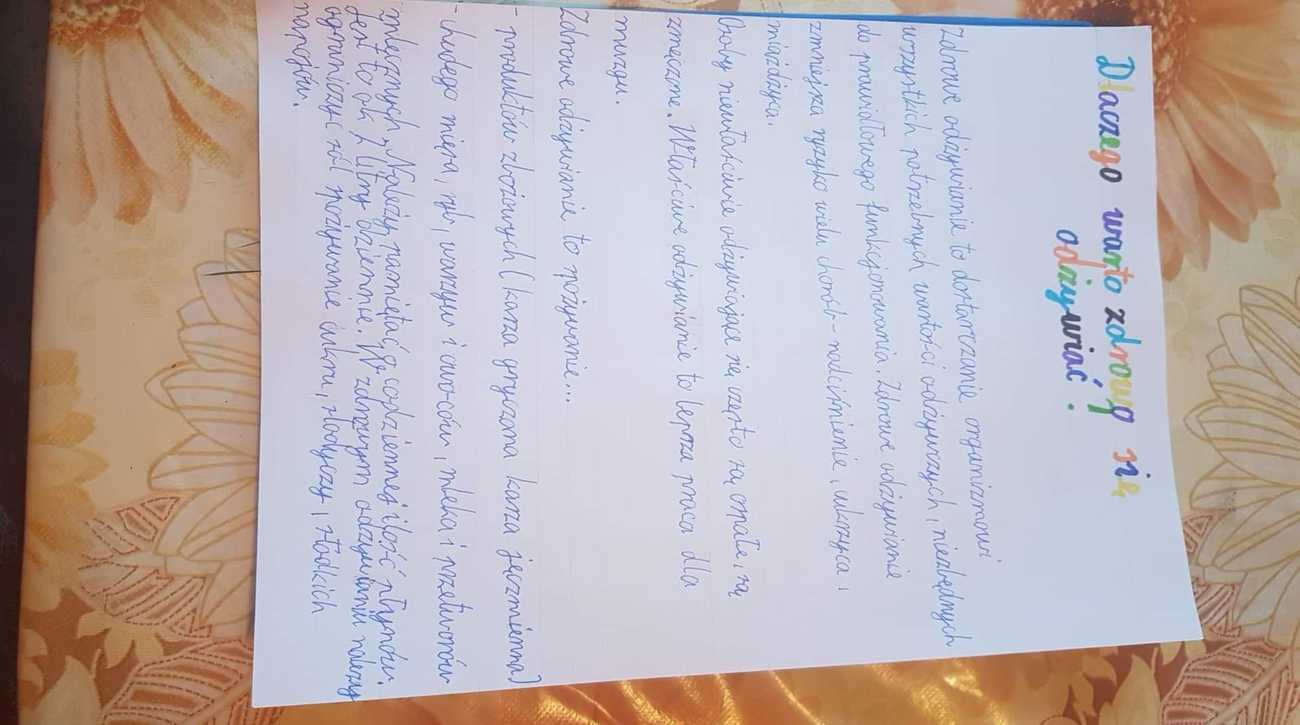 Dlaczego warto zdrowo się
odżywiać?
Zdrowe odżywianie to dostarczanie organizmowi
wszystkich potrzebnych wartości odżywczych, niezbędnych
do prawidłowego funkcjonowania. Zdrowe odżywianie
zmniejsza ryzyko wielu chorób - nadciśnienie, cukrzyca,
miażdżyca.
Osoby niewłaściwie odżywiające się często są ospałe, są
zmęczone. Właściwe odżywianie to lepsza praca dla
mózgu.
Zdrowe odżywianie to spożywanie...
- produktów zbożowych (kasza gryczana kasza jęczmienna)
- chudego mięsa, ryb, warzyw i owoców, mleka i przetworów
mlecznych. Należy pamiętać o codziennej ilość płynów.
Jest to ok 2 litry dziennie. W zdrowym odżywianiu należy
ograniczyć sól spożywanie cukru, słodyczy, słodkich
napojów.